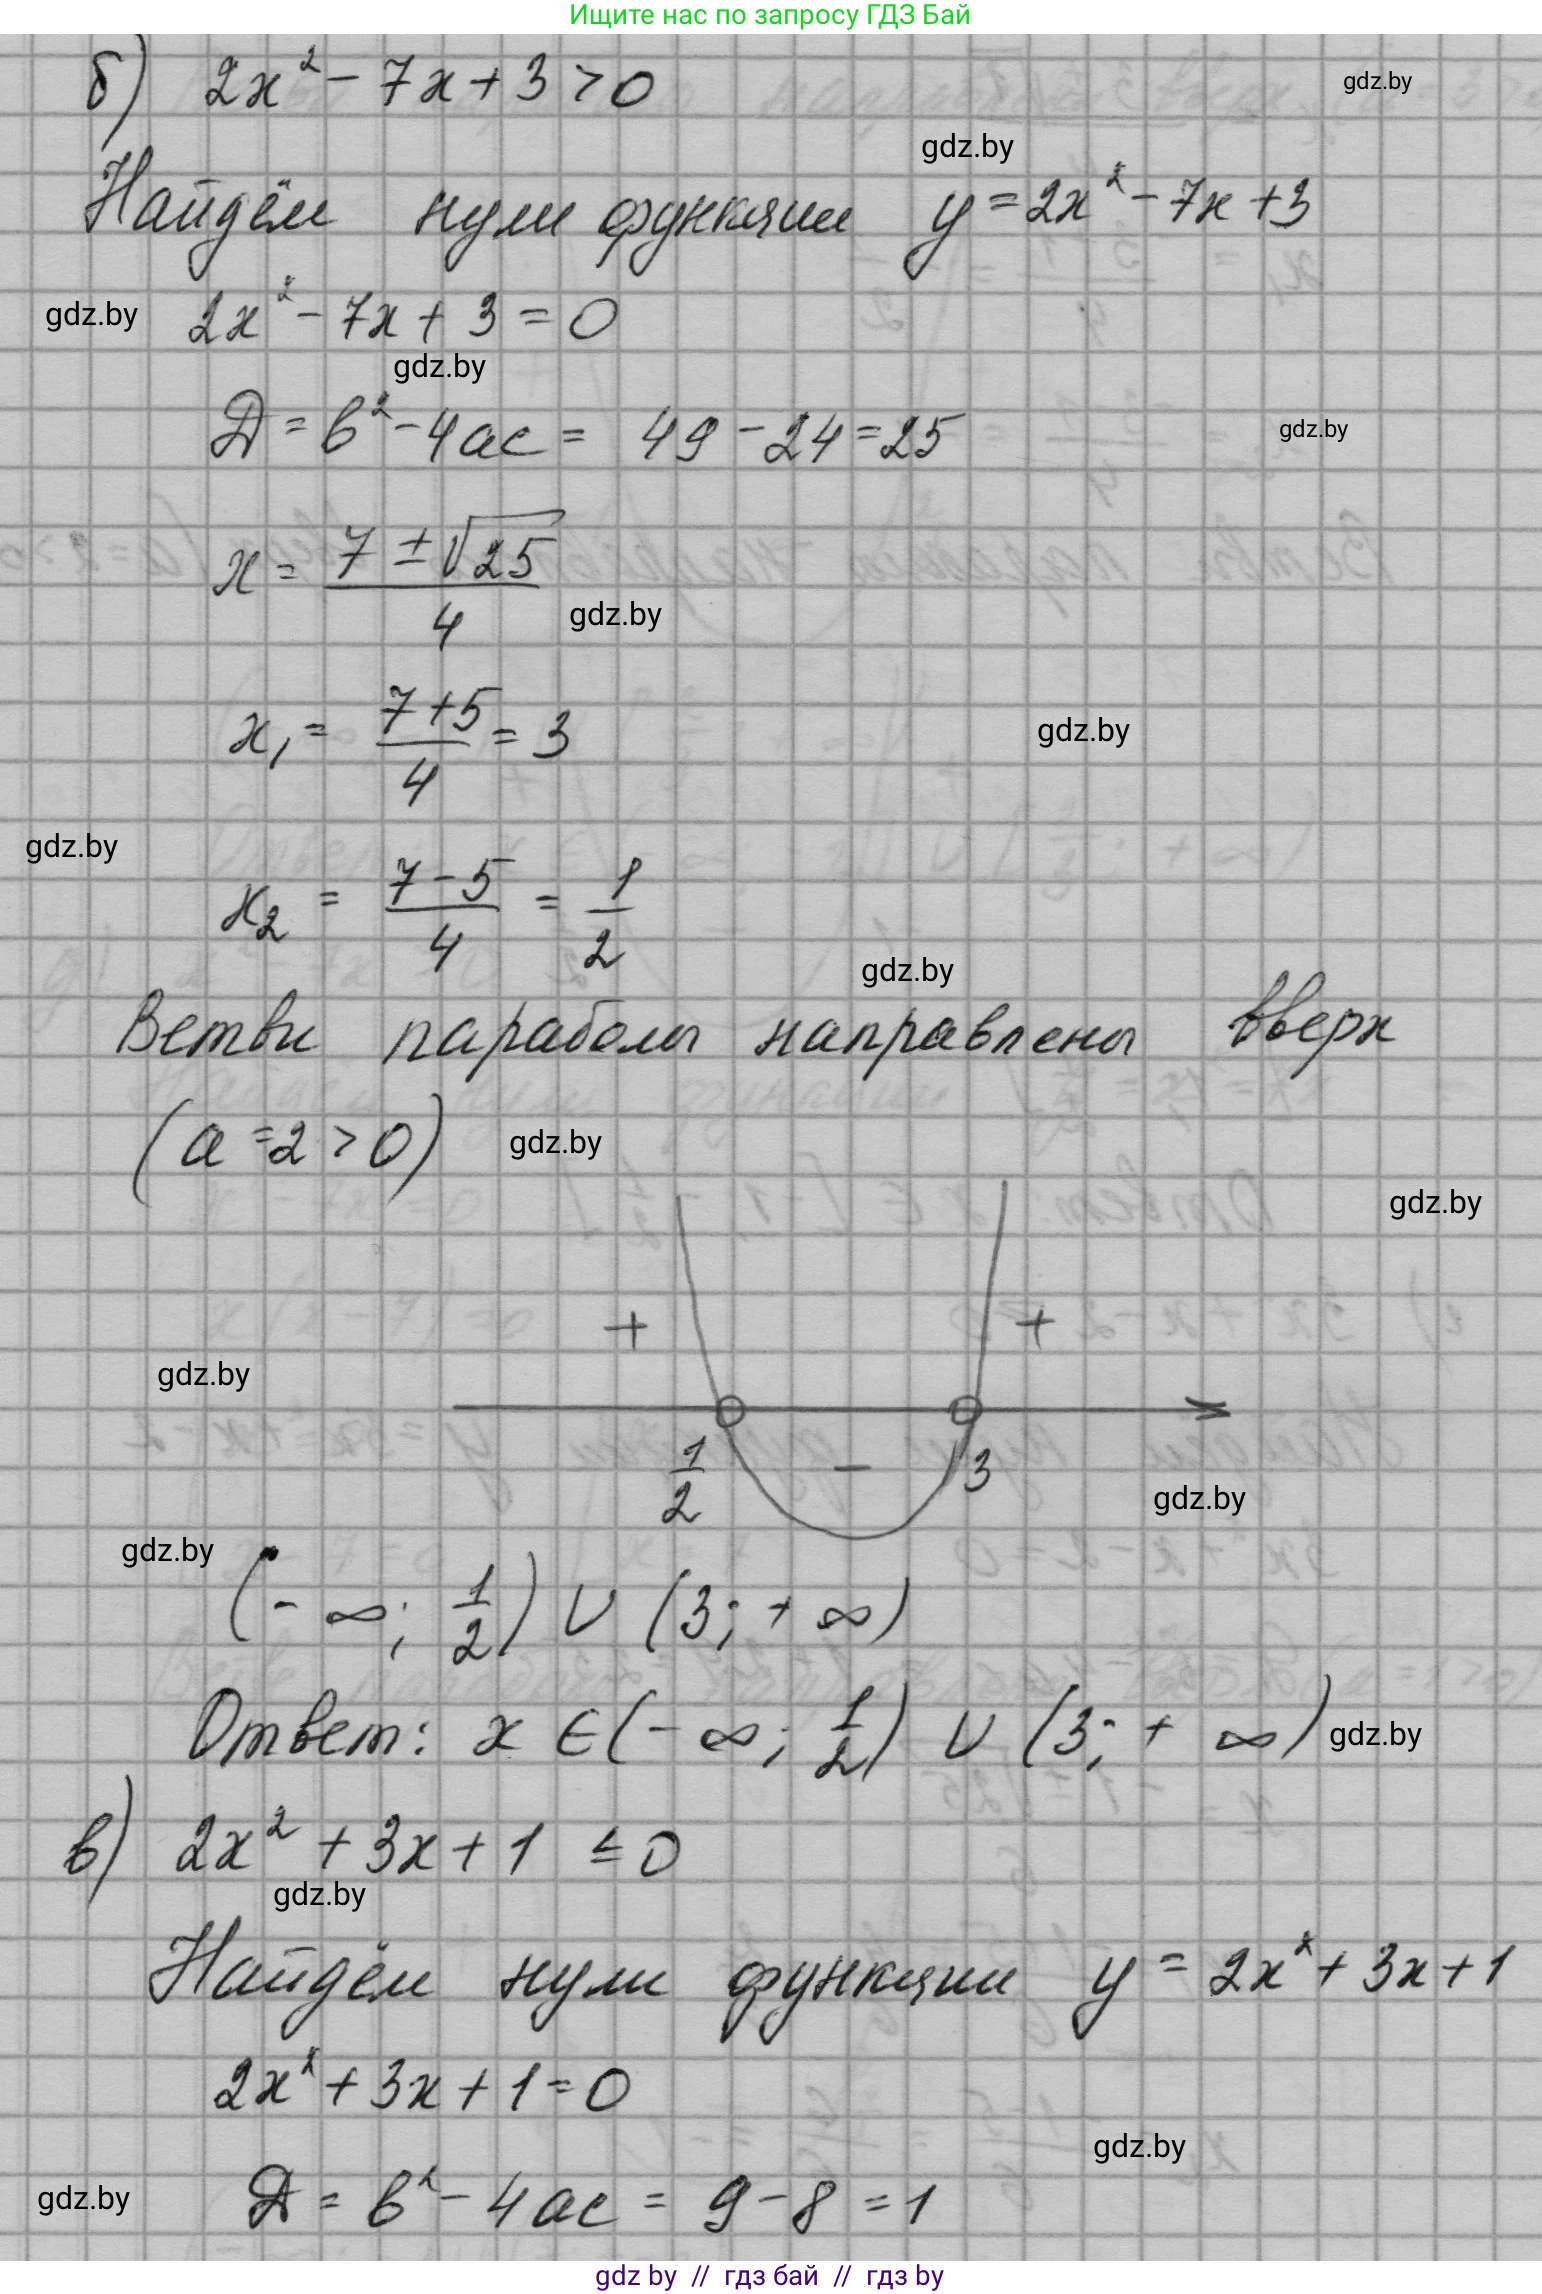 Ищите нас по запросу ГДЗ Бай
б) 2x² - 7x + 3 > 0
gdz.by
gdz.by
Найдём нули функции y = 2x² - 7x + 3
gdz.by 2x² - 7x + 3 = 0
gdz.by
Д = b² - 4ac = 49 - 24 = 25
gdz.by
x = (7 ± √25)/4
gdz.by
x₁ = (7 + 5)/4 = 3
gdz.by
gdz.by
x₂ = (7 - 5)/4 = 1/2
gdz.by
Ветви параболы направлены вверх
(a = 2 > 0)
gdz.by
gdz.by
+ +
gdz.by
1/2 - 3
gdz.by
gdz.by
(- ∞; 1/2) ∪ (3; + ∞)
Ответ: x ∈ (- ∞; 1/2) ∪ (3; + ∞)
gdz.by
в) 2x² + 3x + 1 ≤ 0
gdz.by
Найдём нули функции y = 2x² + 3x + 1
2x² + 3x + 1 = 0
gdz.by
gdz.by
Д = b² - 4ac = 9 - 8 = 1
gdz by // гдз бай // гдз by